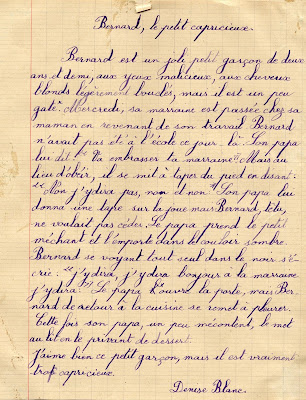 Bernard, le petit capricieux.
Bernard est un joli petit garçon de deux
ans et demi, aux yeux malicieux, aux cheveux
blonds légèrement bouclés, mais il est un peu
gâté. Mercredi, sa marraine est passée chez sa
maman en revenant de son travail. Bernard
n'avait pas été à l'école ce jour-là. Son papa
lui dit: "Va embrasser ta marraine". Mais au
lieu d'obéir, il se met à taper du pied en disant:
"Non j'y dirai pas, non et non". Son papa lui
donna une tape sur la joue mais Bernard, têtu
ne voulait pas céder. Le papa prend le petit
méchant et l'emporte dans le couloir sombre.
Bernard se voyant tout seul dans le noir s'é-
crie: "j'y dirai, j'y dirai bonjour à la marraine
j'y dirai". Le papa lui ouvre la porte, mais Ber-
nard de retour à la cuisine se remet à pleurer.
Cette fois son papa, un peu mécontent, le met
au lit en le privant de dessert.
J'aime bien ce petit garçon, mais il est vraiment
trop capricieux.
Denise Blanc